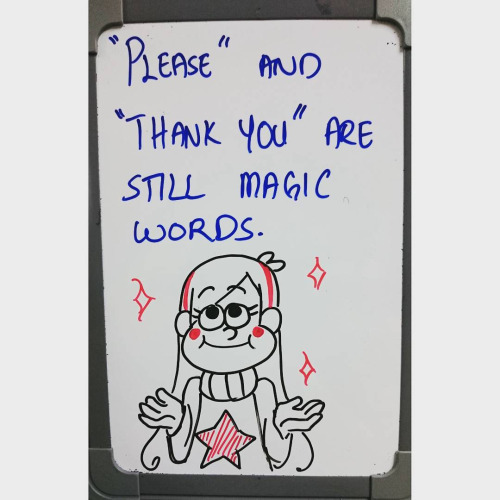 "PLEASE" AND
"THANK YOU" ARE
STILL MAGIC
WORDS.